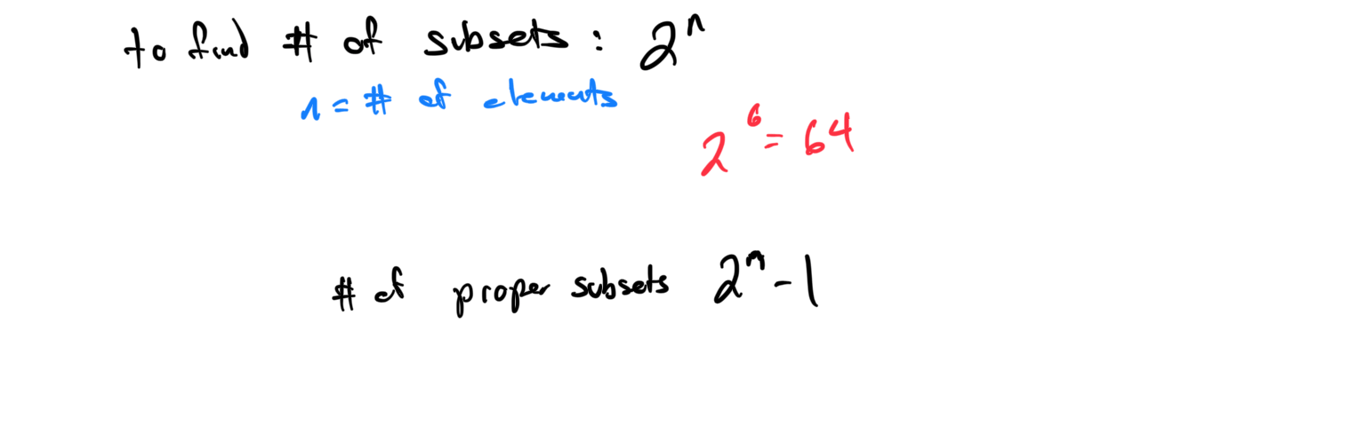 to find # of subsets : 2ⁿ
n = # of elements
2⁶ = 64
# of proper subsets 2ⁿ - 1